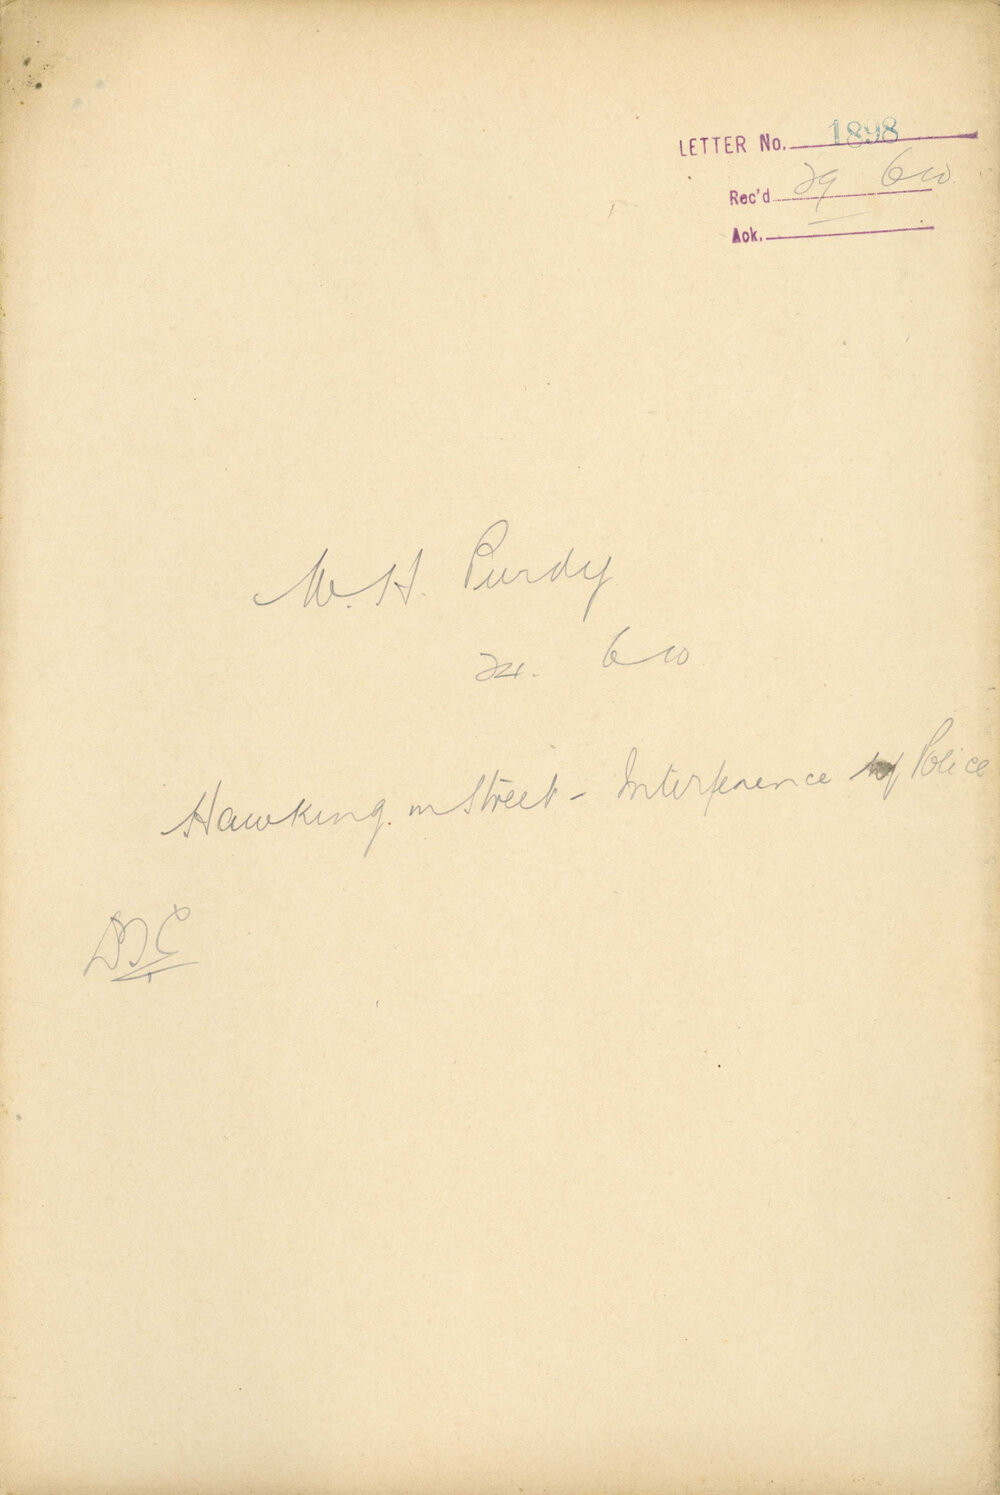 LETTER No. 1898
Rec'd 29 6 10
Ack.
W. H. Purdy
24. 6 10
Hawking in Street - Interference by Police